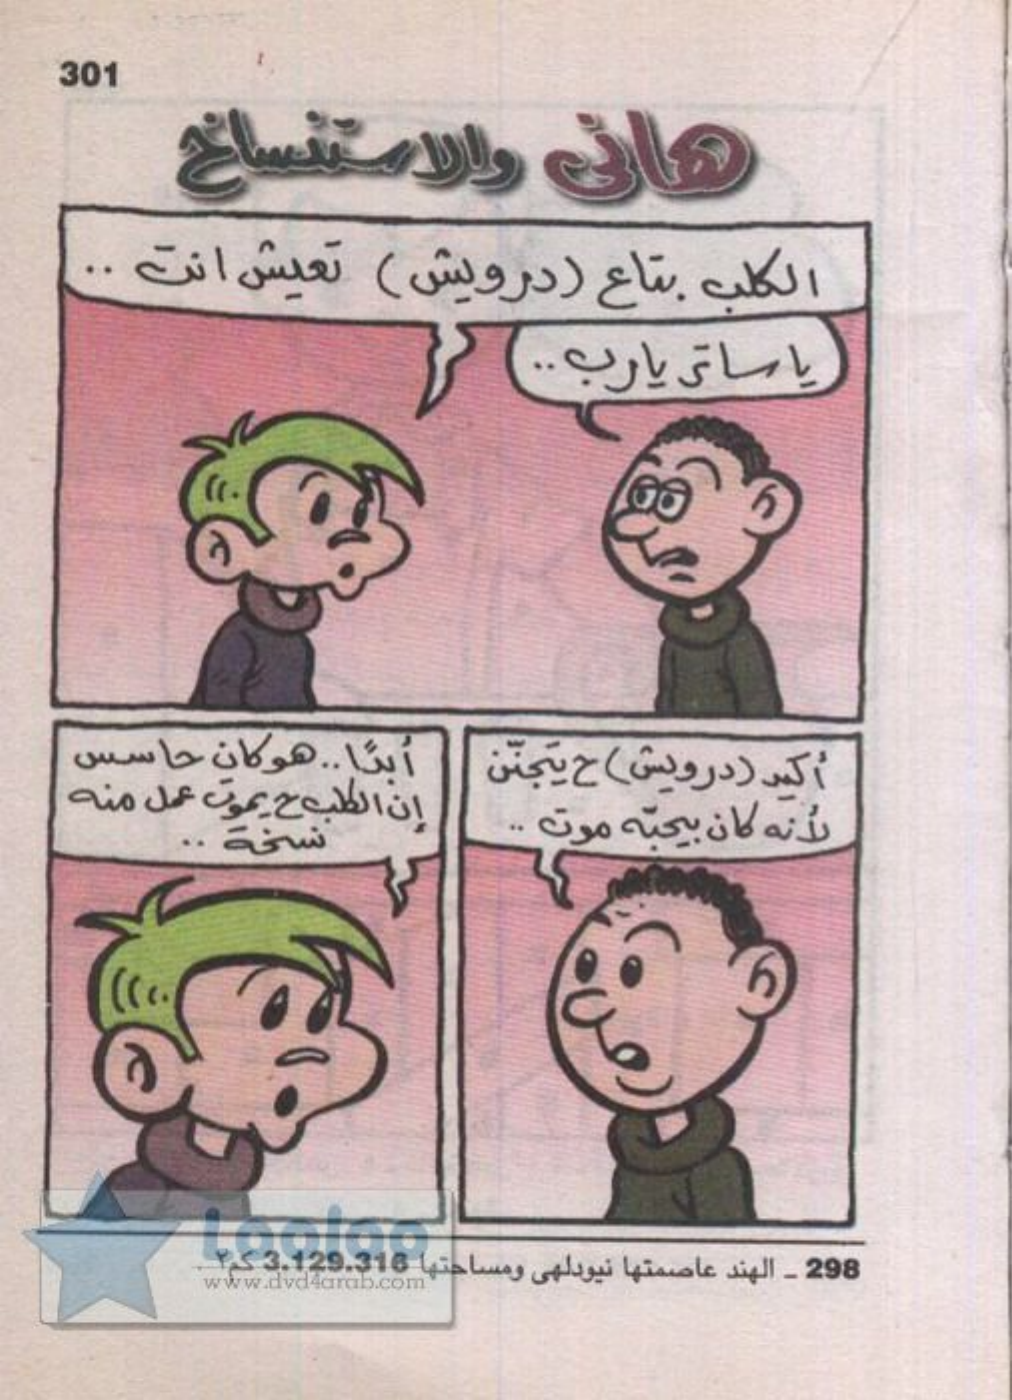 301
هانى والاستنساخ
الكلب بتاع (درويش) تعيش انت ..
ياساتر يارب ..
أكيد (درويش) ح يتجنّن
لأنه كان بيحبّه موت ..
أبدًا .. هو كان حاسس
إن الكلب ح يموت عمل منه
نسخة ..
298 ـ الهند عاصمتها نيودلهى ومساحتها 3.129.316 كم٢ .
Looloo
www.dvd4arab.com